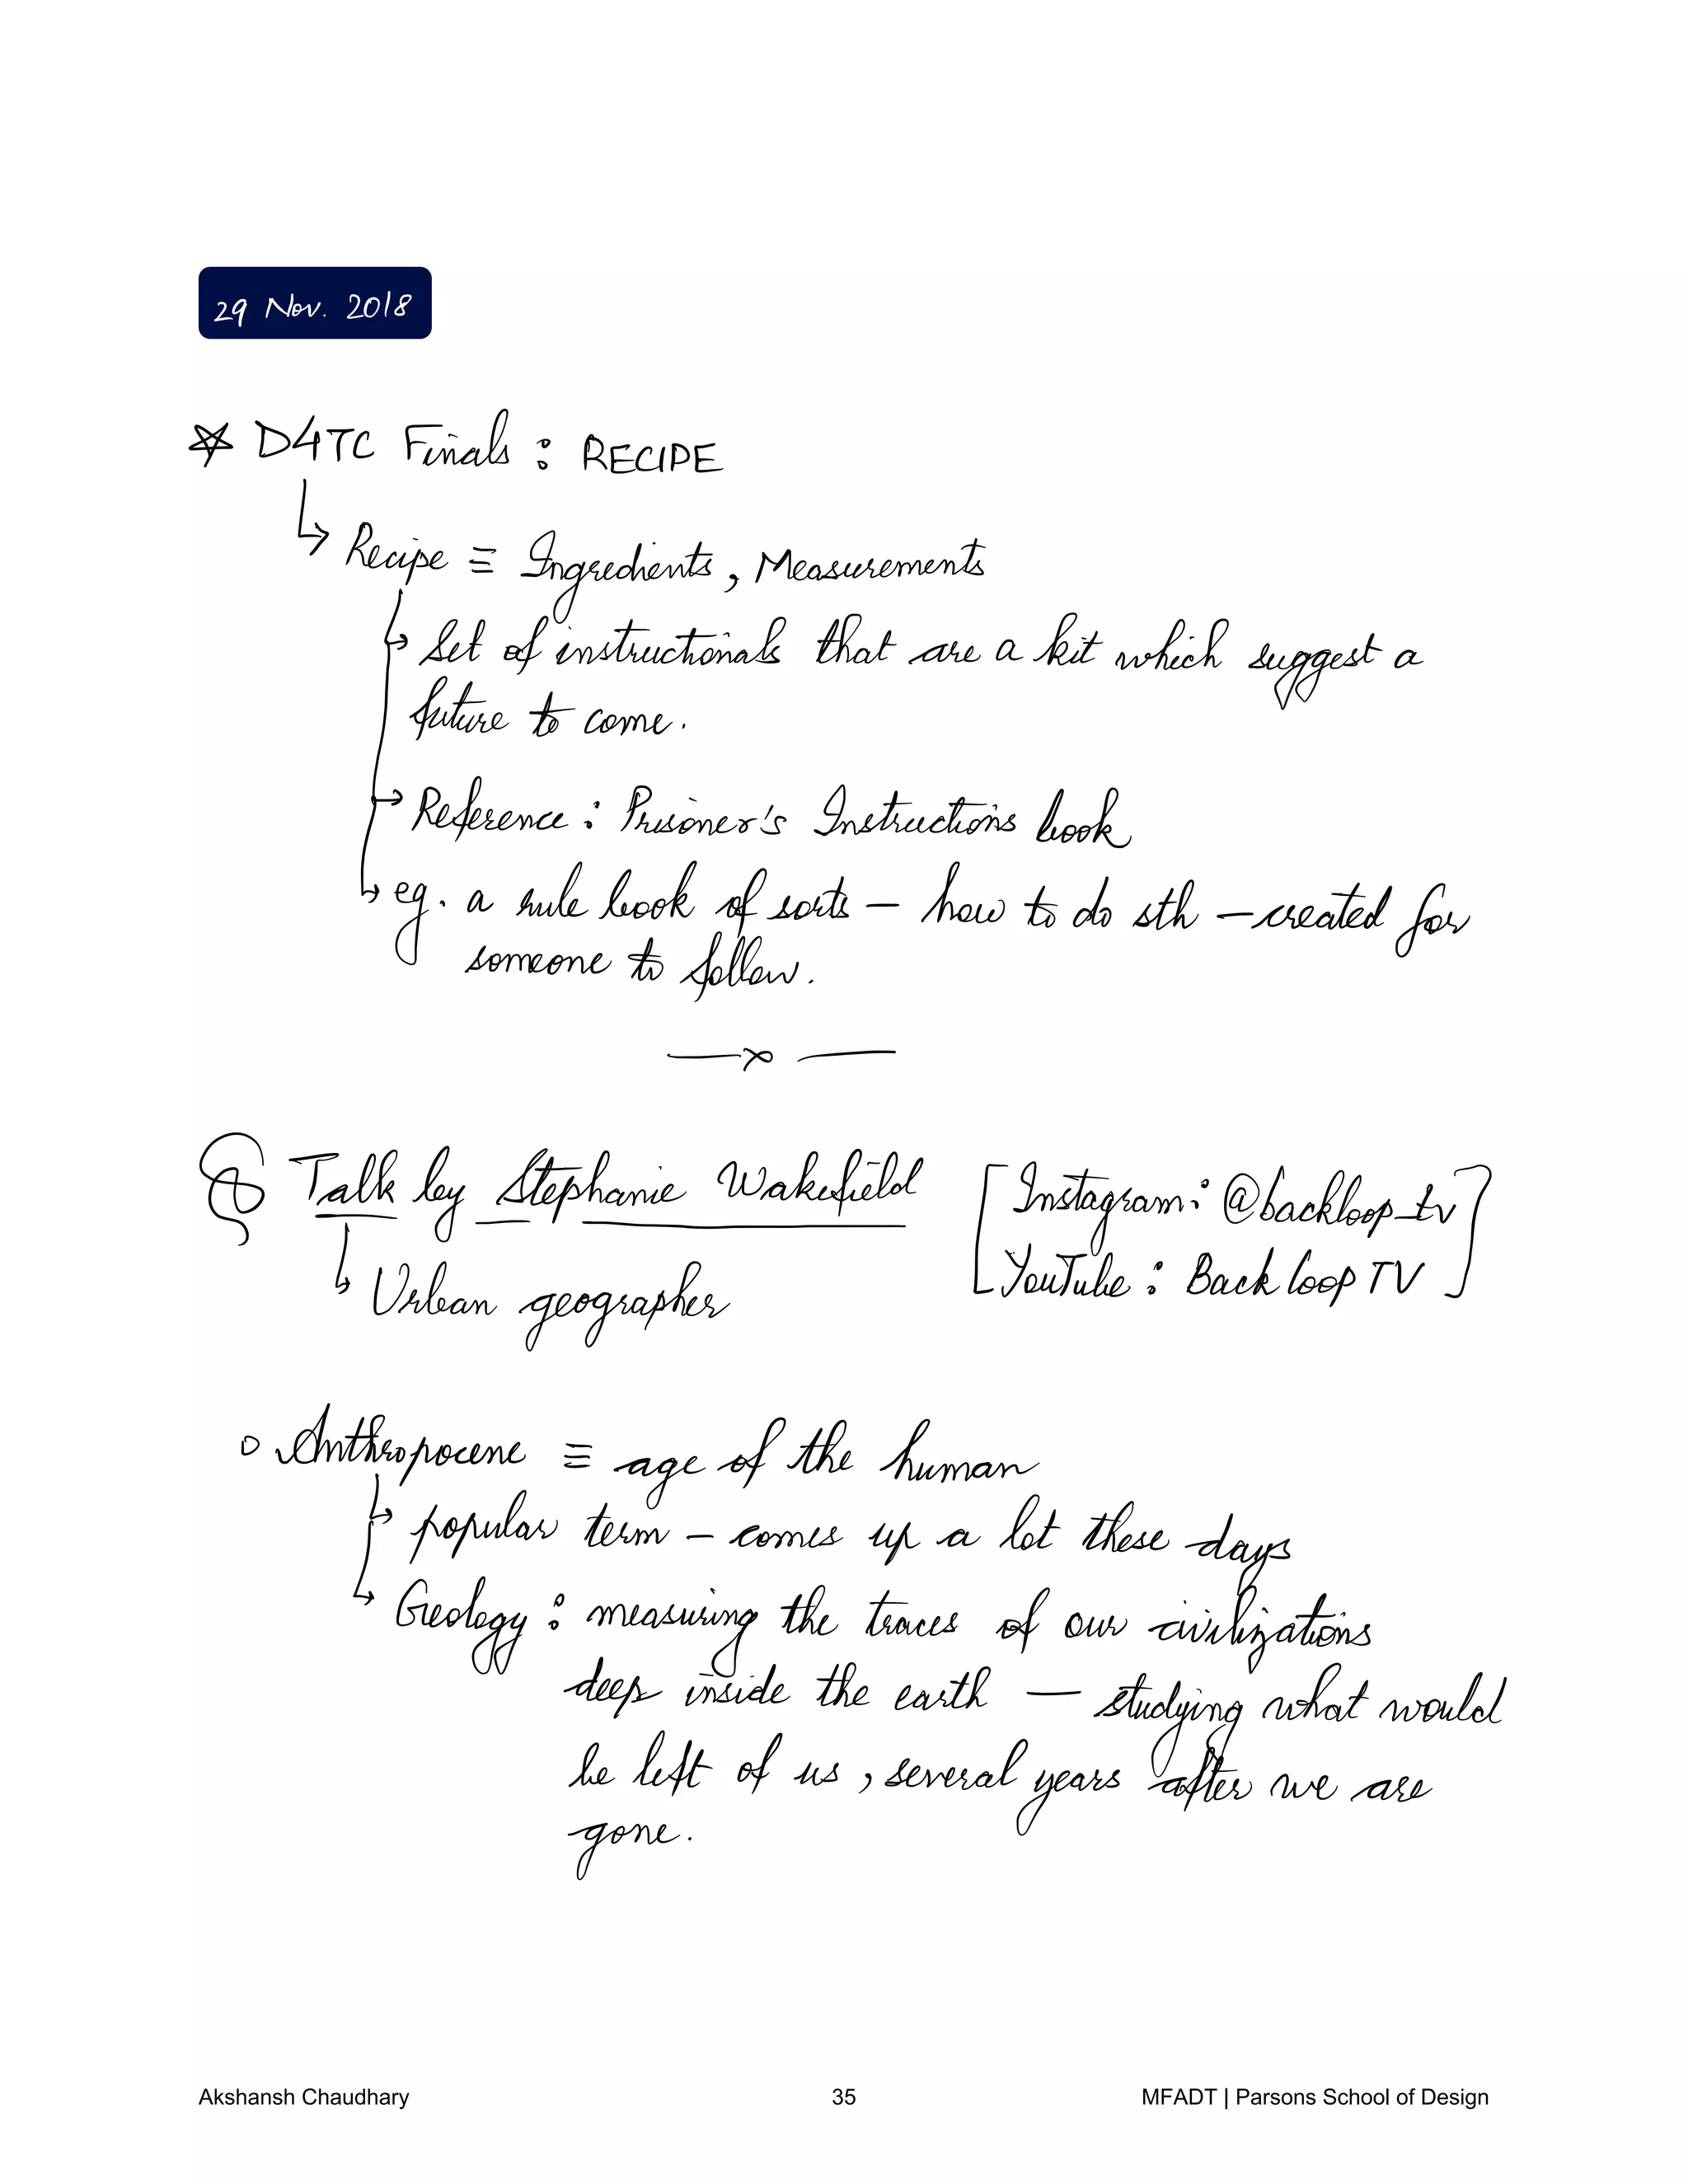 29 Nov. 2018
D4TC Finals : RECIPE
Recipe ≡ Ingredients, Measurements
Set of instructionals that are a kit which suggest a
future to come.
Reference : Prisoner's Instructions book
eg. a rule book of sorts — how to do sth — created for
someone to follow.
Talk by Stephanie Wakefield [Instagram: @backloop_tv
YouTube : Back loop TV]
Urban geographer
Anthropocene ≡ age of the human
popular term — comes up a lot these days
Geology : measuring the traces of our civilizations
deep inside the earth — studying what would
be left of us, several years after we are
gone.
Akshansh Chaudhary 35 MFADT | Parsons School of Design